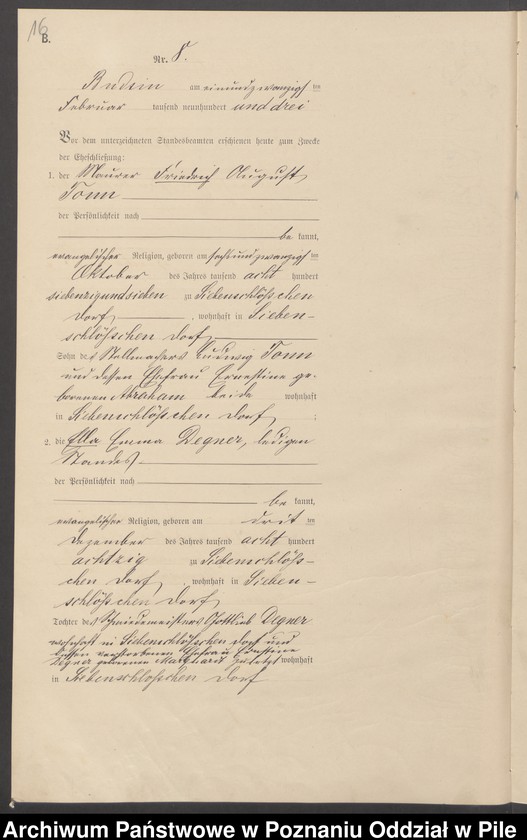 16
B.
Nr. 8.
Budsin am einundzwanzigsten
Februar tausend neunhundert und drei
Vor dem unterzeichneten Standesbeamten erschienen heute zum Zwecke
der Eheschließung:
1. der Maurer Friedrich August
Tonn
der Persönlichkeit nach
be kannt,
evangelischer Religion, geboren am sechsundzwanzigsten
Oktober des Jahres tausend acht hundert
siebenzigundsieben zu Siebenschlößchen
Dorf, wohnhaft in Sieben-
schlößchen Dorf
Sohn des Stellmachers Ludwig Tonn
und dessen Ehefrau Ernestine ge-
borenen Abraham beide wohnhaft
in Siebenschlößchen Dorf ;
2. die Ella Emma Degner, ledigen
Standes
der Persönlichkeit nach
be kannt,
evangelischer Religion, geboren am dritten
Dezember des Jahres tausend acht hundert
achtzig zu Siebenschlöß-
chen Dorf, wohnhaft in Sieben-
schlößchen Dorf
Tochter des Schmiedemeisters Gottlieb Degner
wohnhaft in Siebenschlößchen Dorf und
dessen verstorbenen Ehefrau Ernstine
Degner geborenen zuletzt wohnhaft
in Siebenschlosschen Dorf
Archiwum Państwowe w Poznaniu Oddział w Pile